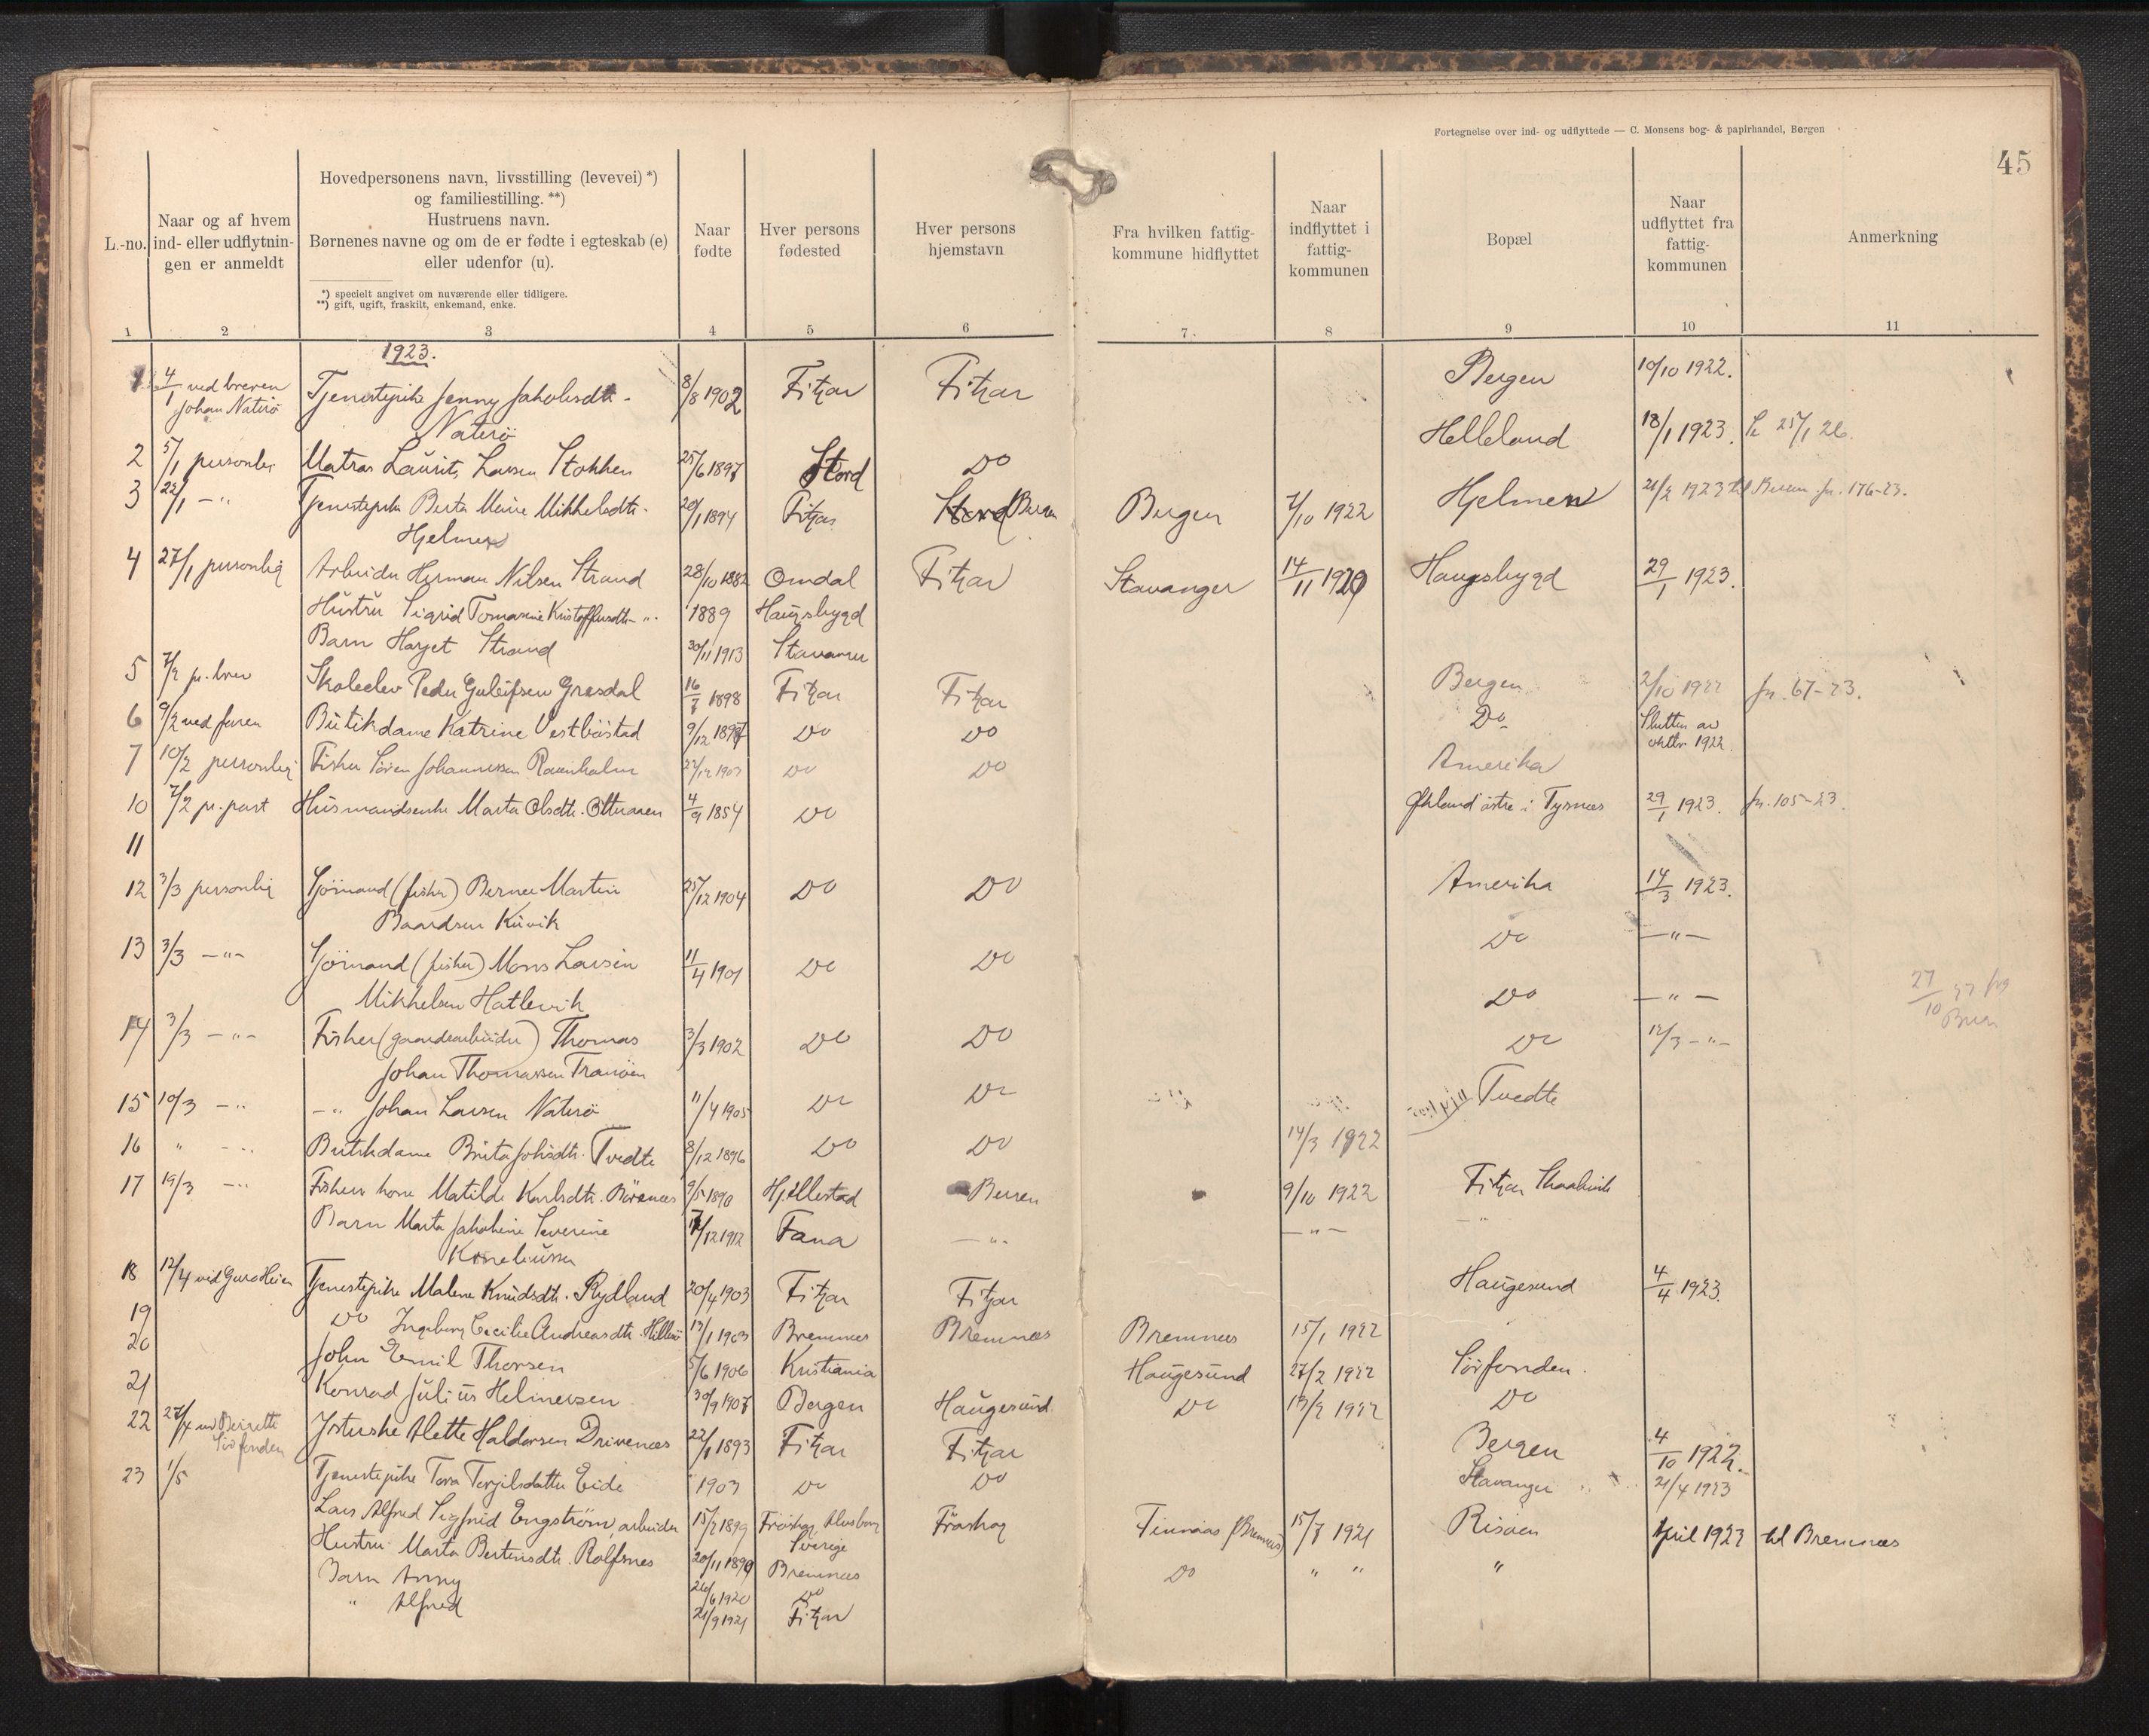 Fortegnelse over ind- og udflyttede — C. Monsens bog- & papirhandel, Bergen
45
L.-no.
Naar og af hvem ind- eller udflytnin-gen er anmeldt
Hovedpersonens navn, livsstilling (levevei) *)
og familiestilling. **)
Hustruens navn.
Børnenes navne og om de er fødte i egteskab (e)
eller udenfor (u).
*) specielt angivet om nuværende eller tidligere.
**) gift, ugift, fraskilt, enkemand, enke.
Naar fødte
Hver persons fødested
Hver persons hjemstavn
Fra hvilken fattig-kommune hidflyttet
Naar indflyttet i fattig-kommunen
Bopæl
Naar udflyttet fra fattig-kommunen
Anmerkning
1 2 3 4 5 6 7 8 9 10 11
1923.
1 4/1 ved broren Tjenestepike Jenny Jakobsdtr. 8/8 1902 Fitjar Fitjar Bergen 10/10 1922.
Johan Naterö
Naterö Helleland 18/1 1923. 25/1 26.
2 5/1 personlig Matros Laurits Larsen Stokken 25/6 1897 Stord Do
3 22/1 — " Tjenestepike Berta Marie Mikkelsdtr. 20/1 1894 Fitjar Stord Bergen Bergen 7/10 1922 Hjelmen 21/2 1923 til jr. 176-23.
Hjelmen
4 27/1 personlig Arbeider Herman Nilsen Strand 28/10 1882 Omdal Fitjar Stavanger 14/11 1920 Haugsbygd 29/1 1923.
Hustru Sigrid Tomasine Kristoffersdtr. — " 1889 Haugsbygd
Barn Harjet Strand 30/11 1913 Stavanger
5 7/2 pr. brev Skoleelev Peder Guleifsen Gresdal 16/7 1898 Fitjar Fitjar Bergen 2/10 1922 jr. 67-23.
6 9/2 ved faren Butikdame Katrine Vestböstad 9/12 1897 Do Do Do Slutten av
oktbr. 1922.
7 10/2 personlig Fisker Sören Johannessen Ravnholm 22/12 1903 Do Do Amerika
10 7/2 pr. post Husmandsenke Marta Olsdtr. 4/9 1854 Do Økland östre i Tysnes 29/1 1923. jr. 105-23.
11
12 3/3 personlig Sjömand (fisker) Berner Martin 25/12 1904 Do Do Amerika 14/3 1923.
Baardsen Kuvik
13 3/3 — " — Sjömand (fisker) Mons Larsen 11/4 1901 Do Do Do — " —
Mikkelsen Hatlevik Do — " —
27/10
14 3/3 — " — Fisker (gaardsarbeider) Thomas 3/3 1902 Do Do Do 12/3 — " —
Johan Thomassen Tranöen
15 10/3 — " — " Johan Larsen Naterö 11/4 1905 Do Do Tvedte
16 " — " Butikdame Brita Johsdtr. Tvedte 8/12 1896 Do Do 14/3 1922
17 19/3 — " Fiskers kone Matilde Karlsdtr. Börsnes 9/5 1890 Hjellestad Bergen 9/10 1922 Fitjar
Barn Marta Jakobine Severine 7/12 1912 Fana — " — — " — — "
Korneliussen
18 12/4 ved Guro Heien Tjenestepike Malene Knudsdtr. Rydland 20/4 1903 Fitjar Fitjar Haugesund 4/4 1923.
19 Do Ingeborg Cecilie Andreasdtr. 13/1 1903 Bremnes Bremnes Bremnes 15/1 1922
20 John Emil Thorsen 5/6 1906 Kristiania Haugesund 27/2 1922 Sörfonden.
21 Konrad Julius Helmersen 30/9 1907 Bergen Haugesund Do 13/2 1922 Do
22 27/4 ved Berrette Jysterske Alette Haldorsen Drivenes 22/1 1893 Fitjar Fitjar Bergen 4/10 1922.
Sörfonden
23 1/5 Tjenestepike Tora Torgilsdatter Eide 1903 Do Do Stavanger 21/4 1923
Lars Alfred Sigfrid Engström, arbeider 15/2 1899 Sverige Tinnaas (Bremnes) 15/7 1921 Risöen April 1923 til Bremnes
Hustru Marta Bertinsdtr. Rolfsnes 20/11 1899 Bremnes Do " " "
Barn Anny 26/6 1920 Do
" Alfred 21/9 1921 Fitjar